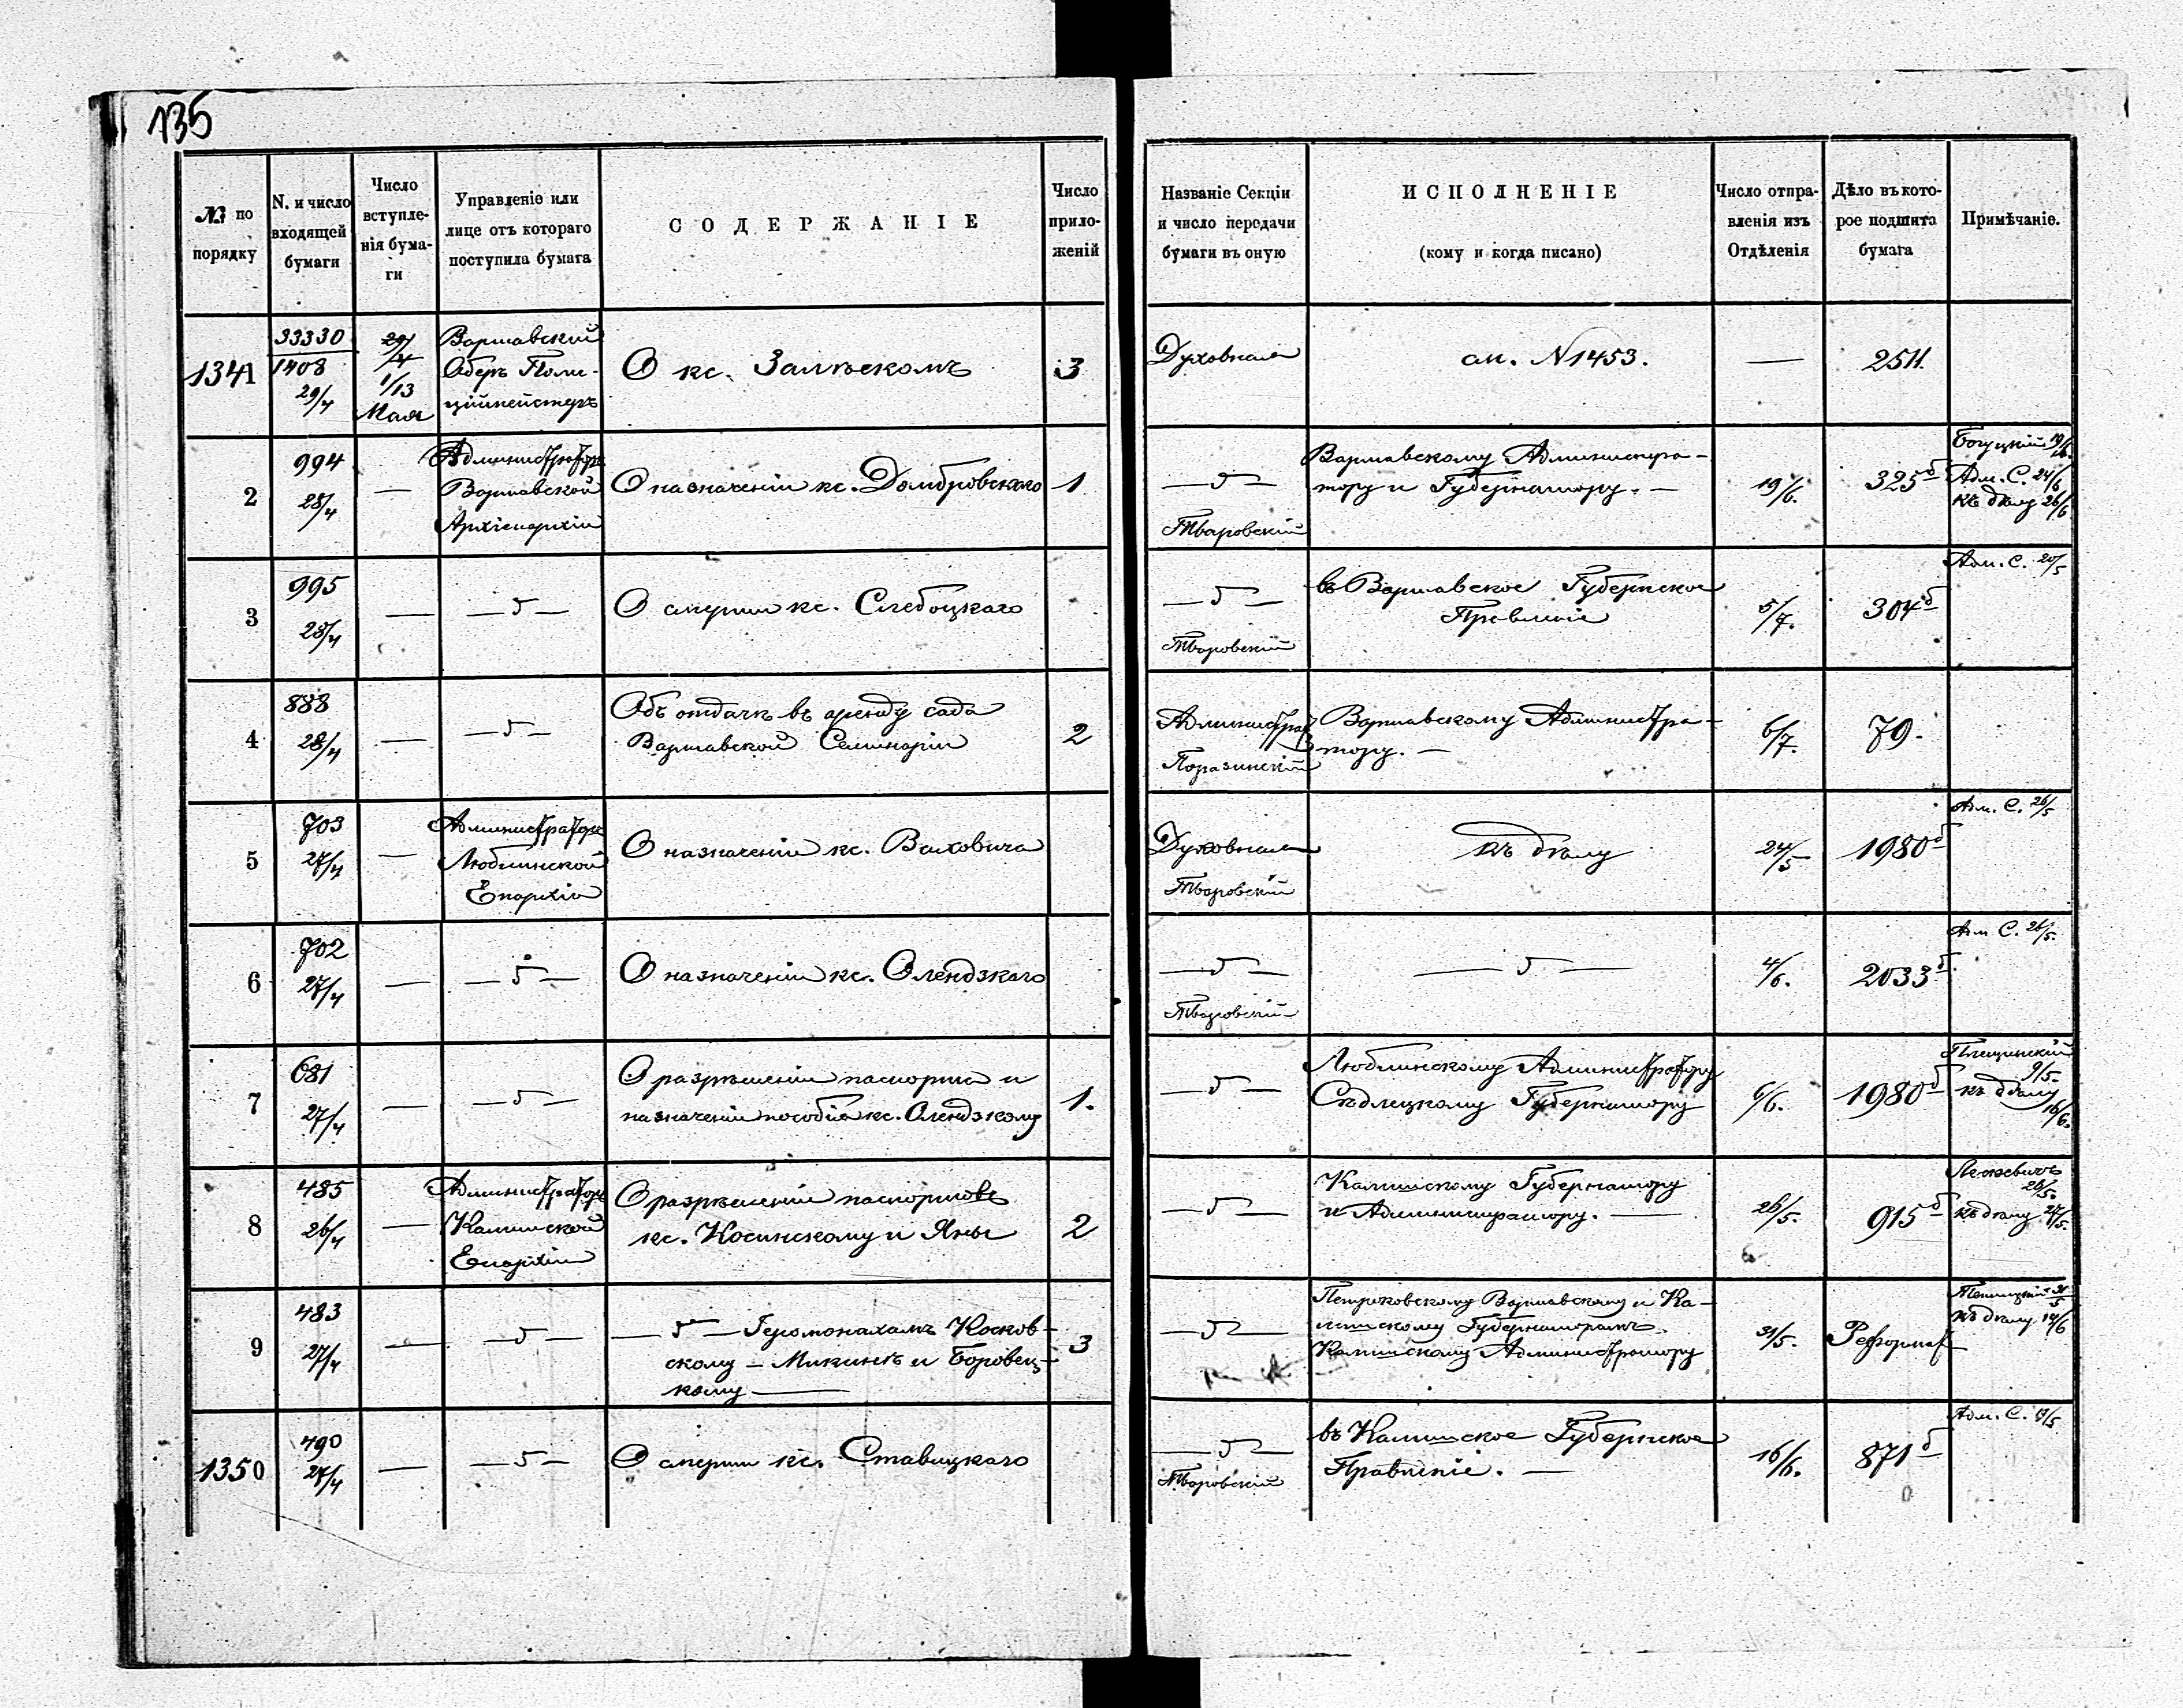 135
№ по порядку
N. и число входящей бумаги
Число вступле-нія бума-ги
Управленіе или лице отъ котораго поступила бумага
СОДЕРЖАНІЕ
Число прило-женій
Названіе Секціи и число передачи бумаги въ оную
ИСПОЛНЕНІЕ
(кому и когда писано)
Число отпра-вленія изъ Отдѣленія
Дѣло въ кото-рое подшита бумага
Примѣчаніе.
1341
33330
1408
29/4
29/4
1/13
Мая
Варшавскій
Оберъ Поли-
ційместеръ
О кс. Залѣскомъ
3
Духовная
см. N 1453.
—
2511.
2
994
28/4
—
Администраторъ
Варшавской
Архіепархіи
О назначеніи кс. Домбровскаго
1
— „ —
Тваровскій
Варшавскому Администра-
тору и Губернатору. —
19/6.
325 б
Богуцкій 19/6.
Адм. С. 24/6
Къ дѣлу 26/6
3
995
28/4
—
— „ —
О смерти кс. Слебоцкаго
— „ —
Тваровскій
въ Варшавское Губернское
Правленіе
5/7.
304 б
Адм. С. 20/5
4
888
28/4
—
— „ —
Объ отдачѣ въ аренду сада
Варшавской Семинаріи
2
Администрат
Поразинскій
Варшавскому Администра-
тору. —
6/7.
79.
5
703
27/4
—
Администраторъ
Люблинской
Епархіи
О назначеніи кс. Ваховича
Духовная
Тваровскій
къ дѣлу
24/5
1980 б
Адм. С. 26/5
6
702
27/4
—
— „ —
О назначеніи кс. Олендзкаго
— „ —
Тваровскій
— „ —
4/6.
2033 б
Адм. С. 26/5.
7
681
27/4
—
— „ —
О разрѣшеніи паспорта и
назначеніи пособія кс. Олендзкому
1.
— „ —
Люблинскому Администратору
Сѣдлецкому Губернатору
6/6.
1980 б
9/5.
къ дѣлу
16/6.
8
485
26/4
—
Администраторъ
Калишской
Епархіи
О разрѣшеніи паспортовъ
кс. Косинскому и Яны
2
— „ —
Калишскому Губернатору
и Администратору. —
26/5.
915 б
26/5.
Къ дѣлу 27/5.
9
483
27/4
—
— „ —
— „ — Іеромонахамъ Косков-
скому — Микинѣ и Боровец-
кому —
3
— „ —
Петроковскому Варшавскому и Ка-
лишскому Губернаторамъ.
Калишскому Администратору
31/5.
Реформат
Къ дѣлу 14/6
1350
490
27/4
—
— „ —
О смерти кс. Ставицкаго
— „ —
Тваровскій
въ Калишское Губернское
Правленіе. —
16/6.
871 б
Адм. С. 17/5